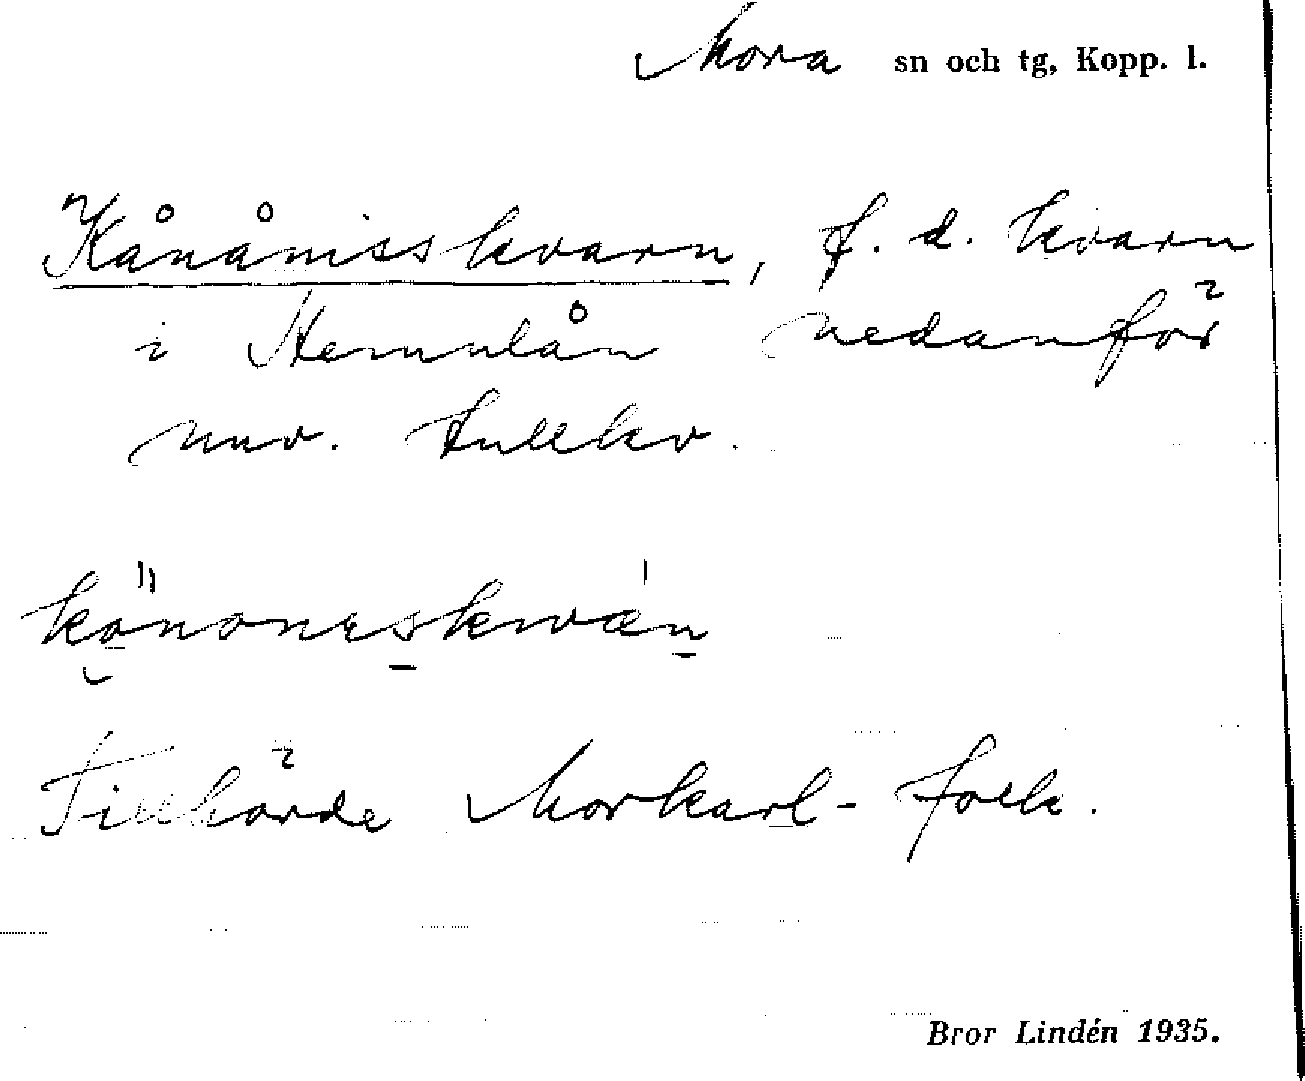 Mora sn och tg, Kopp. l.
Kånånisskvarn, f. d. kvarn
i Hemulån nedanför
nuv. tullkv.
Tillhörde Morkarl-folk.
Bror Lindén 1935.